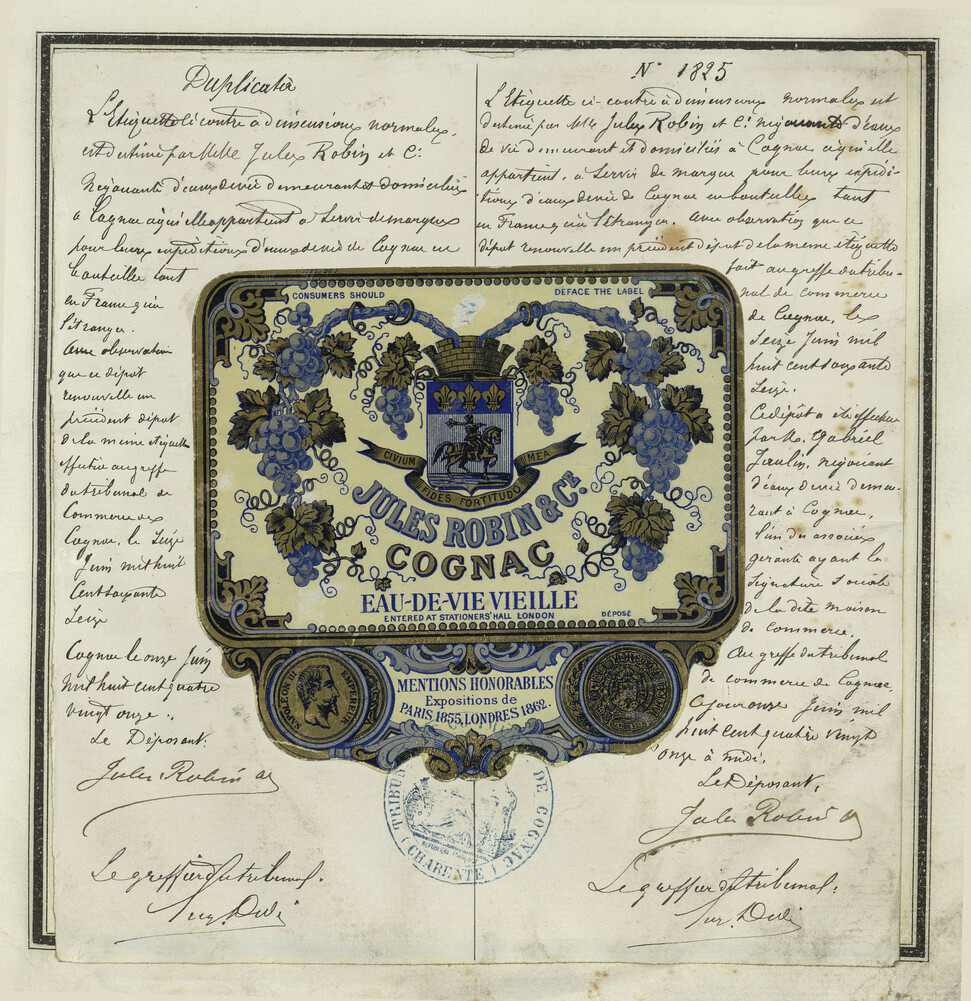 Duplicata
L'Etiquette ci contre à dimensions normales,
est destiné par MMrs Jules Robin et Cie
Négociants d'eaux de vie demeurants et domiciliés
à Cognac à qui elle appartient à servir de marque
pour leurs expéditions d'eaux de vie de Cognac en
bouteilles tant
en France qu'à
l'étranger.
Avec observation
que ce dépôt
renouvelle un
précédent dépôt
de la même étiquette
effectué au greffe
du tribunal de
Commerce de
Cognac, le Seize
Juin mil huit
Cent soixante
Seize
Cognac le onze Juin
mil huit cent quatre
vingt onze.
Le Déposant.
Jules Robin
Le greffier du tribunal.
N° 1825
L'Etiquette ci-contre à dimensions normales est
destiné par MMrs Jules Robin et Cie négociants d'eaux
de vie demeurant et domiciliés à Cognac à qui elle
appartient, à servir de marque pour leurs expédi-
tions d'eaux de vie de Cognac en bouteilles tant
en France qu'à l'étranger. Avec observation que ce
dépôt renouvelle un précédent dépôt de la même étiquette
fait au greffe du tribu-
nal de commerce
de Cognac, le
Seize Juin mil
huit cent soixante
Seize.
Ce dépôt a été effectué
par Mr. Gabriel
Jaulin, négociant
d'eaux de vie demeu-
rant à Cognac,
l'un des associés
gérants ayant la
signature sociale
de la dite maison
de commerce.
Au greffe du tribunal
de commerce de Cognac,
ce jour onze Juin mil
huit cent quatre vingt
onze à midi.
Le Déposant,
Jules Robin
Le greffier du tribunal.
CONSUMERS SHOULD DEFACE THE LABEL
CIVIUM MEA
FIDES FORTITUDO
JULES ROBIN & Cie
COGNAC
EAU-DE-VIE VIEILLE
ENTERED AT STATIONERS' HALL LONDON
DÉPOSÉ
NAPOLEON III EMPEREUR
MENTIONS HONORABLES
Expositions de
PARIS 1855, LONDRES 1862.
TRIBUNAL DE COGNAC
CHARENTE